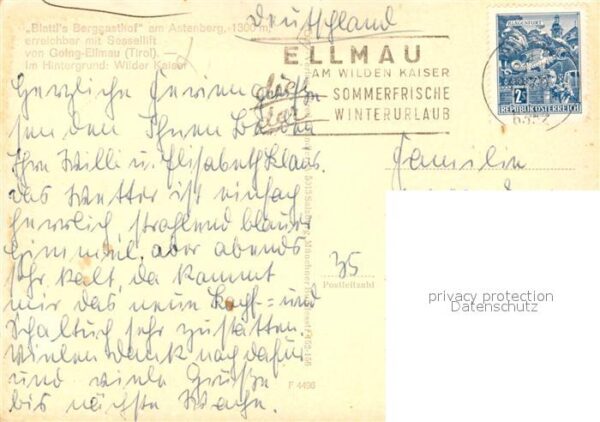 "Blattl's Berggasthof" am Astenberg, 1300 m,
erreichbar mit Sessellift
von Going-Ellmau (Tirol).
Im Hintergrund: Wilder Kaiser
Deutschland
ELLMAU
AM WILDEN KAISER
SOMMERFRISCHE
WINTERURLAUB
KLAGENFURT
2S
REPUBLIK ÖSTERREICH
6352
Herzliche Feriengrüße
senden Ihnen
Ihre Willi u. Elisabeth Klaus.
Das Wetter ist einfach
herrlich strahlend blauer
Himmel, aber abends
sehr kalt, da kommt
mir das neue Kopf- und
Schaltuch sehr zustatten.
Vielen Dank noch dafür
und viele Grüße
bis nächste Woche.
Familie
35
Postleitzahl
F 4496
privacy protection
Datenschutz